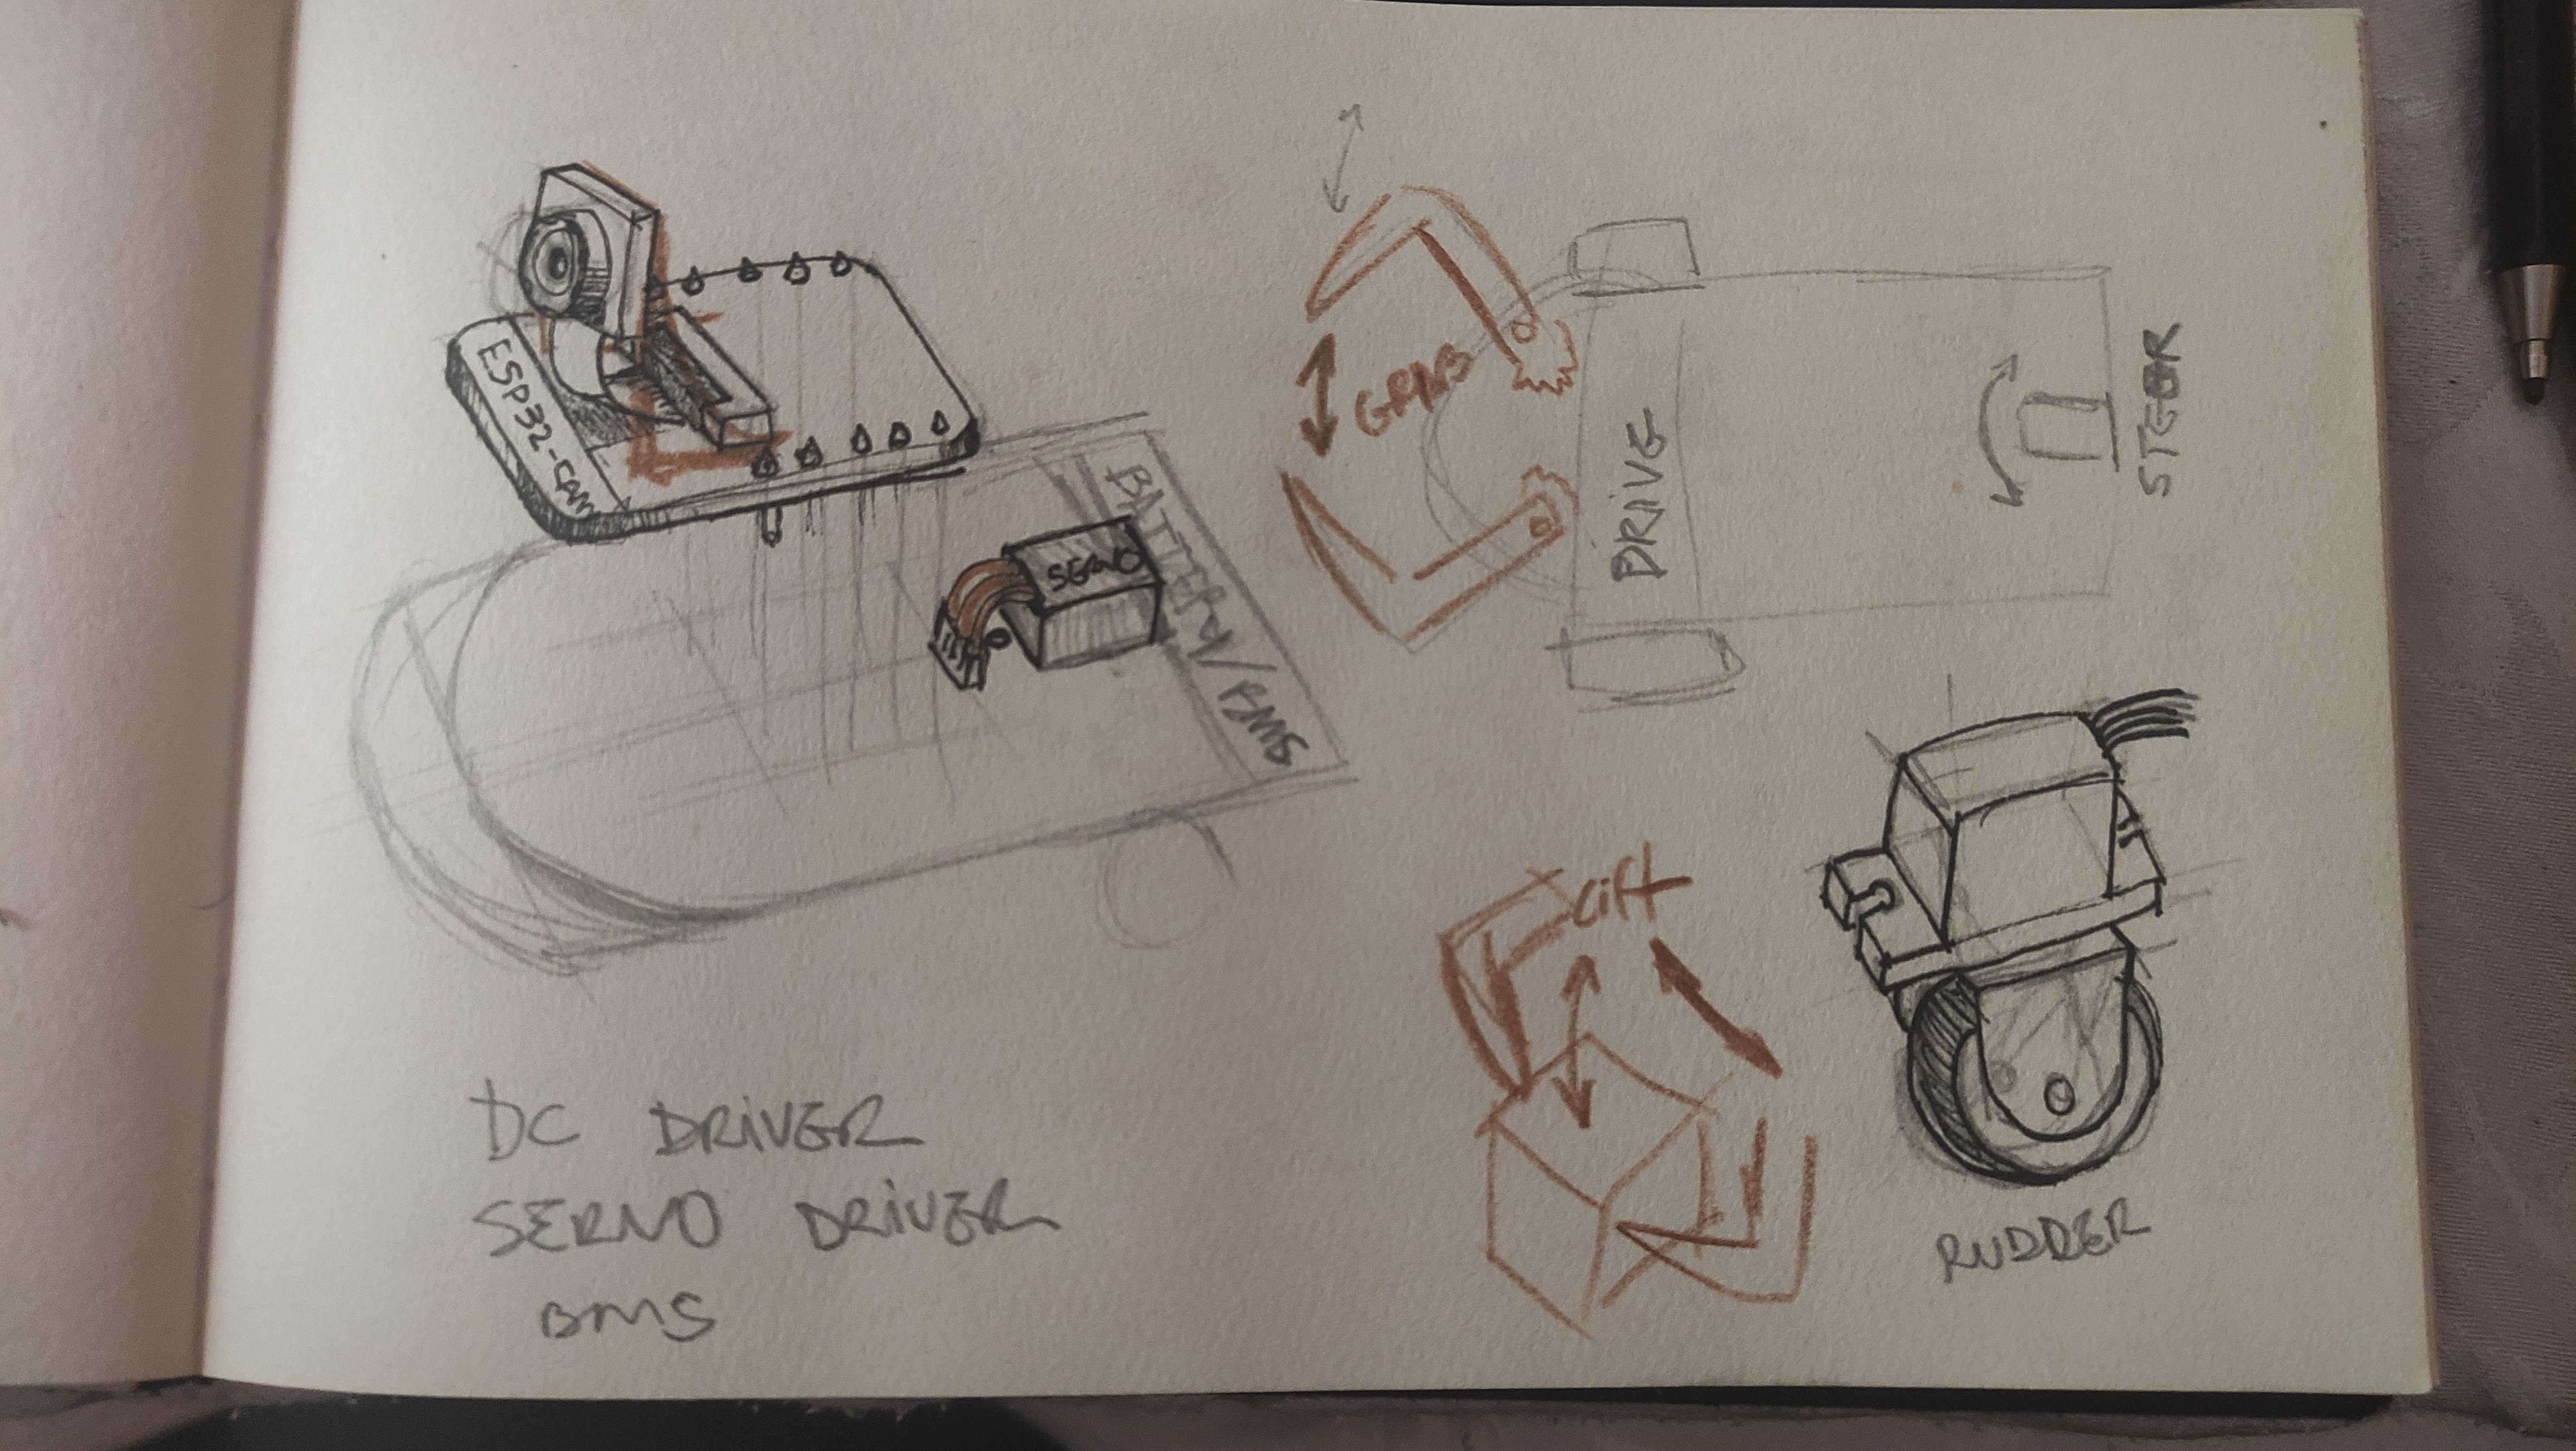 ESP32-CAM
SERVO
BATTERY/BMS
GRAB
DRIVE
STEER
Lift
RUDDER
DC DRIVER
SERVO DRIVER
BMS